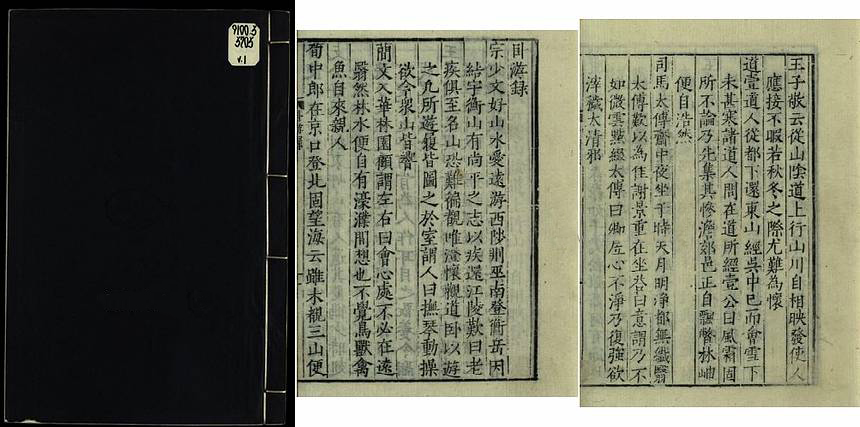 9100.3
v.1
臥游録
宗少文好山水愛遠游西陟荆巫南登衡岳因
結宇衡山有尚平之志以疾還江陵歎曰老
疾俱至名山恐難徧覩唯澄懷觀道臥以遊
之凡所遊履皆圖之於室謂人曰撫琴動操
欲令衆山皆響
簡文入華林園顧謂左右曰會心處不必在遠
翳然林水便自有濠濮間想也不覺鳥獸禽
魚自來親人
荀中郎在京口登北固望海云雖未覩三山便
王子敬云從山陰道上行山川自相映發使人
應接不暇若秋冬之際尤難為懷
道壹道人從都下還東山經吳中已而會雪下
未甚寒諸道人問在道所經壹公曰風霜固
所不論乃先集其慘澹郊邑正自飄瞥林岫
便自浩然
司馬太傅齋中夜坐于時天月明淨都無纖翳
太傅歎以為佳謝景重在坐荅曰意謂乃不
如微雲點綴太傅曰卿居心不淨乃復強欲
滓穢太清邪